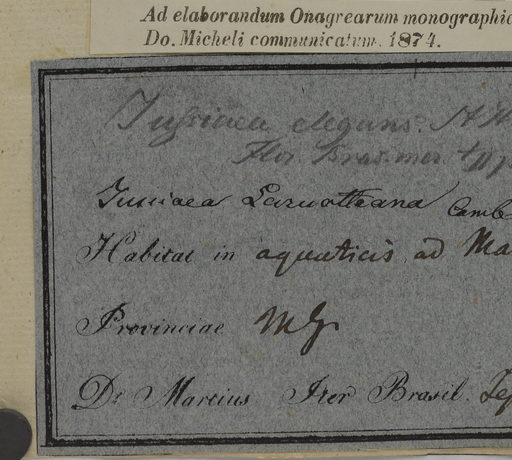 Ad elaborandum Onagrearum monographic
Do. Micheli communicatum. 1874.
Jussiaea elegans. St H
Flor. Bras. mer.
Jussiaea Laruotteana Camb
Habitat in aquaticis ad Ma
Provinciae MG
Dr Martius Iter Brasil. Sep